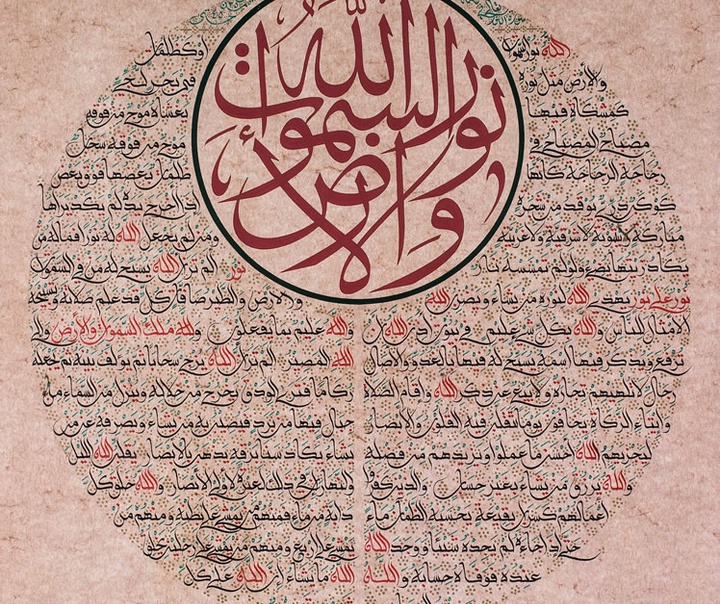 الله نور السموات والأرض
الله نور السموات
والارض مثل نوره
كمشكاة فيها
مصباح المصباح في
زجاجة الزجاجة كانها
كوكب دري يوقد من شجرة
مباركة زيتونة لا شرقية ولا غربية
يكاد زيتها يضيء ولو لم تمسسه نار
نور على نور يهدي الله لنوره من يشاء ويضرب الله
الامثال للناس والله بكل شيء عليم في بيوت اذن الله ان
ترفع ويذكر فيها اسمه يسبح له فيها بالغدو والاصال
رجال لا تلهيهم تجارة ولا بيع عن ذكر الله واقام الصلاة
وايتاء الزكاة يخافون يوما تتقلب فيه القلوب والابصار
ليجزيهم الله احسن ما عملوا ويزيدهم من فضله
والله يرزق من يشاء بغير حساب والذين كفروا
اعمالهم كسراب بقيعة يحسبه الظمآن ماء
حتى اذا جاءه لم يجده شيئا ووجد الله
عنده فوفاه حسابه والله
او كظلمات
في بحر لجي
يغشاه موج من فوقه
موج من فوقه سحاب
ظلمات بعضها فوق بعض
اذا اخرج يده لم يكد يراها
ومن لم يجعل الله له نورا فما له من
نور الم تر ان الله يسبح له من في السموات
والارض والطير صافات كل قد علم صلاته وتسبيحه
والله عليم بما يفعلون ولله ملك السموات والارض والى
الله المصير الم تر ان الله يزجي سحابا ثم يؤلف بينه ثم يجعله
ركاما فترى الودق يخرج من خلاله وينزل من السماء من
جبال فيها من برد فيصيب به من يشاء ويصرفه عن من
يشاء يكاد سنا برقه يذهب بالابصار يقلب الله الليل
والنهار ان في ذلك لعبرة لاولي الابصار والله خلق كل
دابة من ماء فمنهم من يمشي على بطنه ومنهم من
يمشي على اربع ومنهم من يمشي على رجلين يخلق
الله ما يشاء ان الله على كل